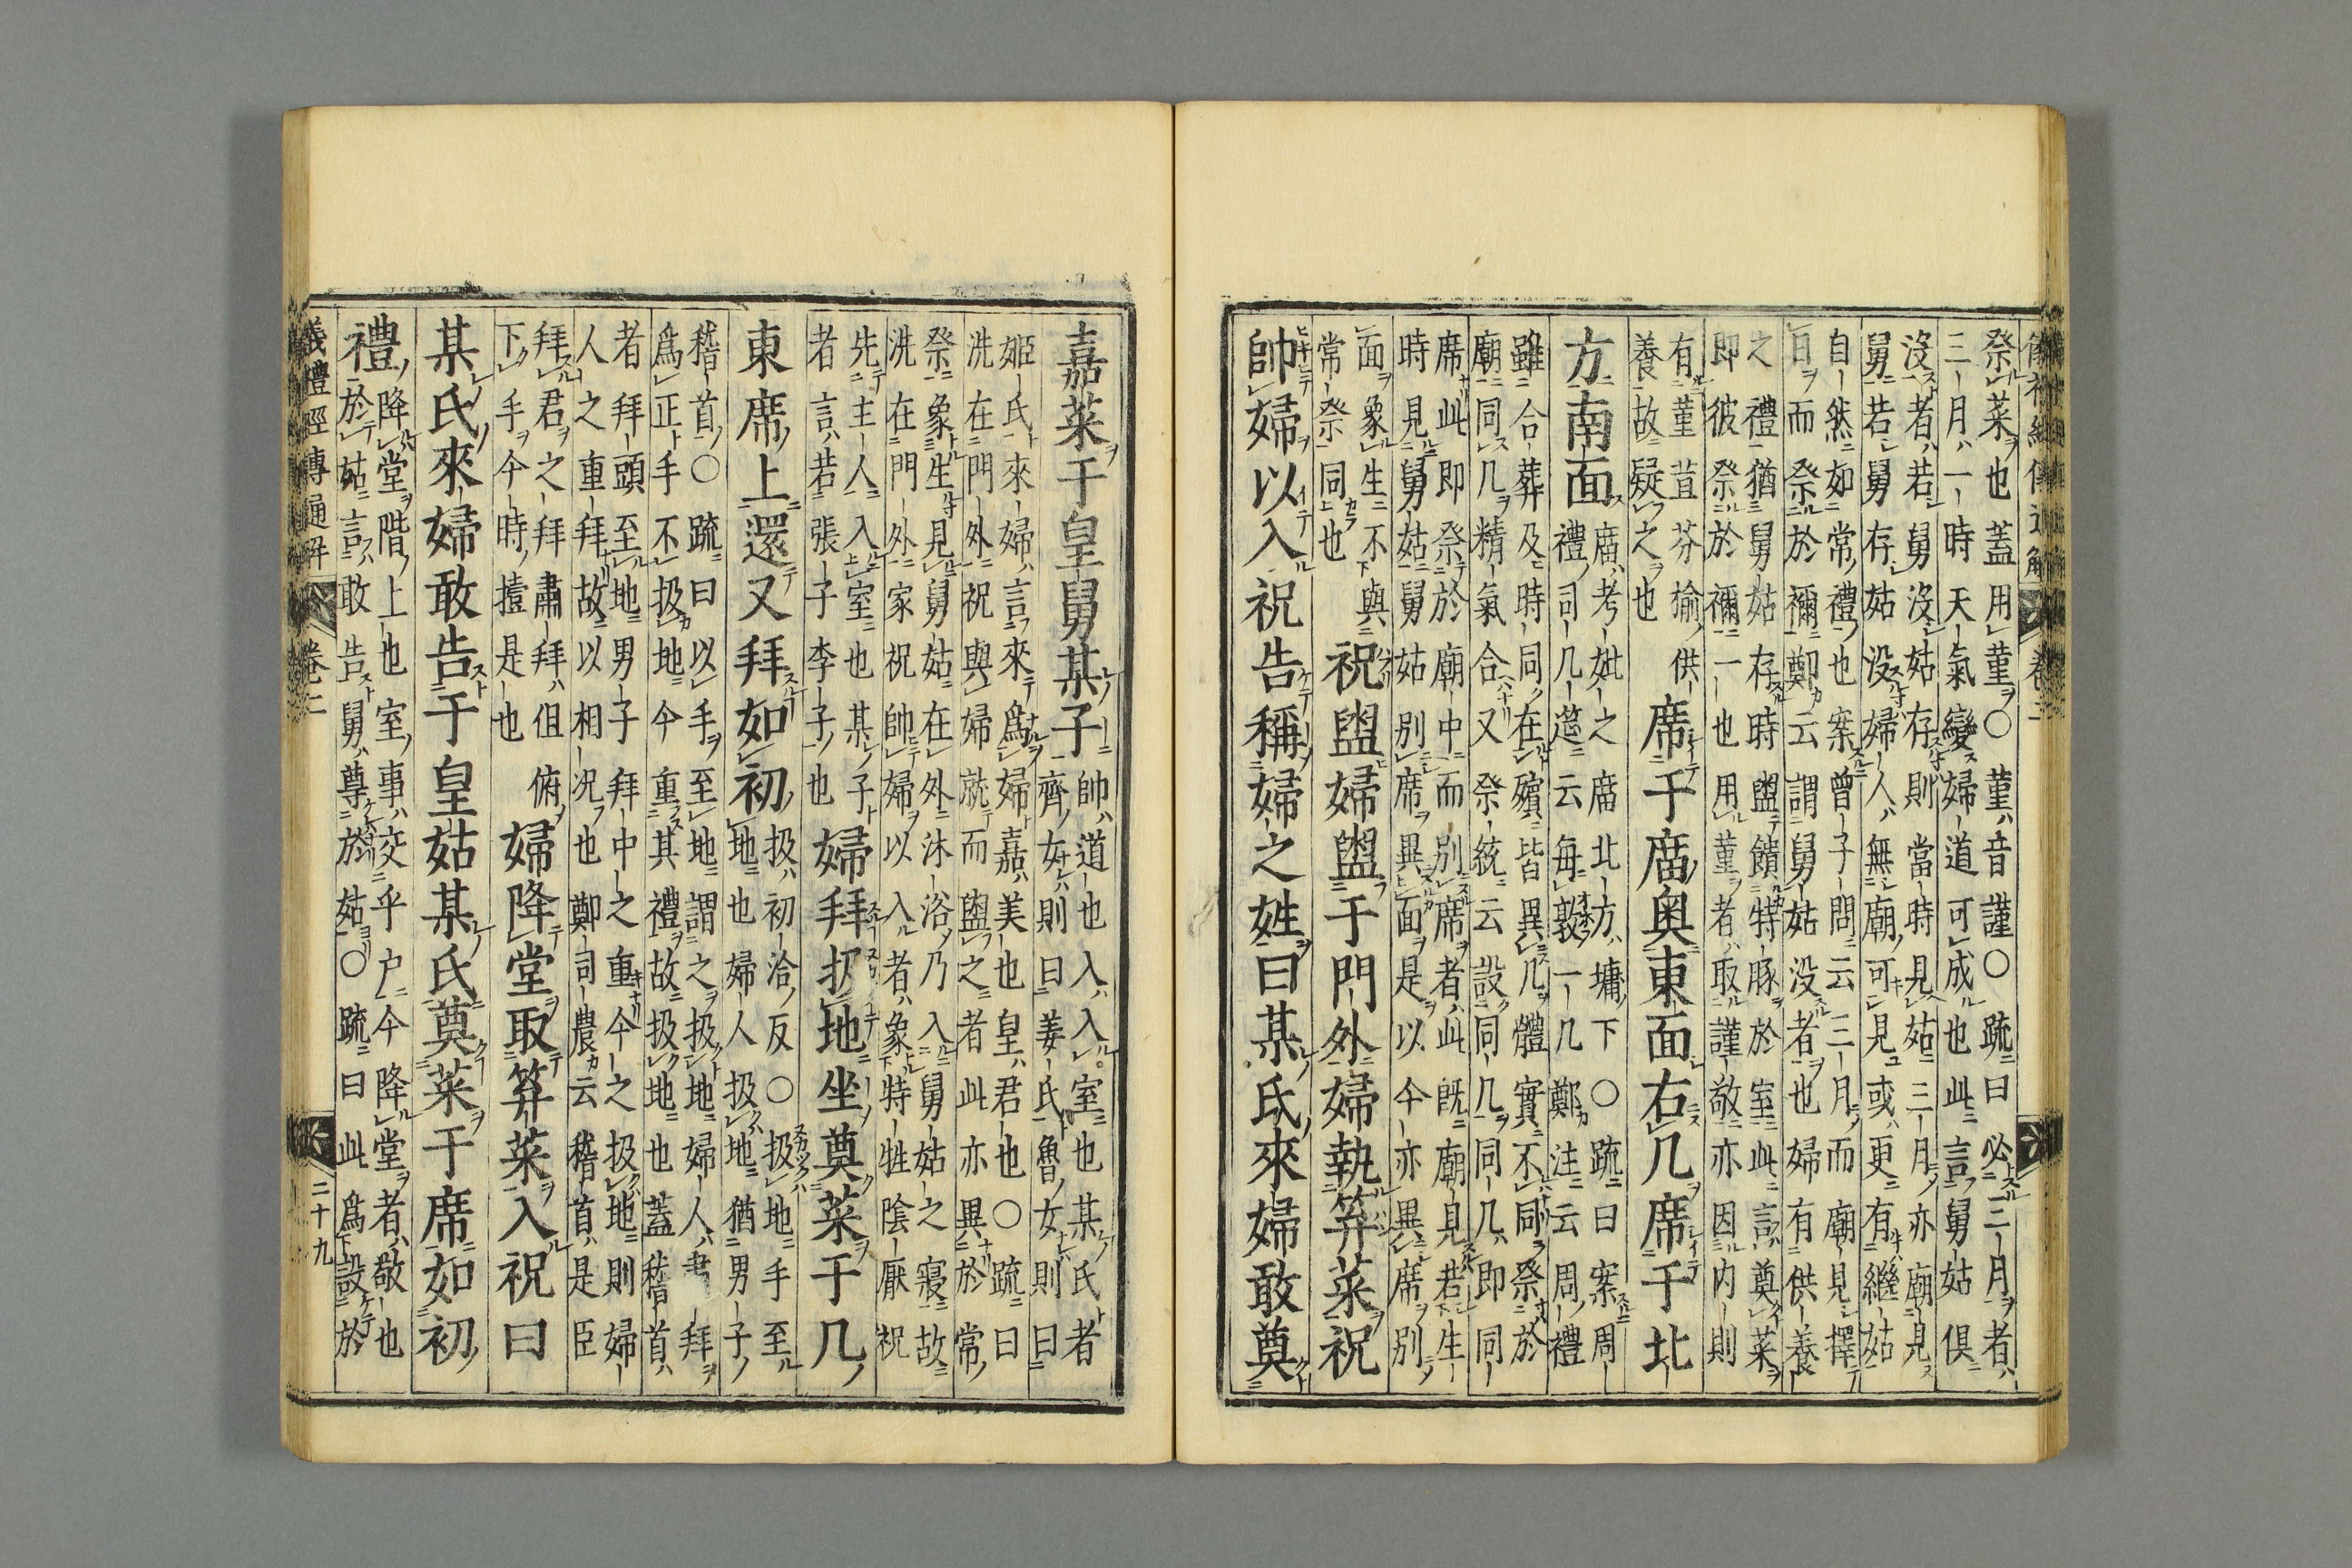 祭菜也蓋用菫○菫音謹○疏曰必三月者
三月一時天氣變婦道可成也此言舅姑俱
沒者若舅沒姑存則當時見姑三月亦廟見
舅若舅存姑没婦人無廟可見或更有繼姑
自然如常禮也案曾子問云三月而廟見擇
日而祭於禰鄭云謂舅姑没者也婦有供養
之禮猶舅姑存時盥饋特豚於室此言奠菜
即彼祭於禰一也用菫者取謹敬亦因内則
有菫荁芬榆供
養故疑之也
席于庿奥東面右几席于北
方南面
庿考妣之庿北方墉下○疏曰案周
禮司几筵云每敦一几鄭注云周禮
雖合葬及時同在殯皆異几體實不同祭於
廟同几精氣合又祭統云設同几同几即同
席此即祭於廟中而別席者此既廟見若生
時見舅姑舅姑別席異面是以今亦異席別
面象生不與
常祭同也
祝盥婦盥于門外婦執笲菜祝
帥婦以入祝告稱婦之姓曰某氏來婦敢奠
嘉菜于皇舅某子
帥道也入入室也某氏者
齊女則曰姜氏魯女則曰
姬氏來婦言來爲婦嘉美也皇君也○疏曰
洗在門外祝與婦就而盥之者此亦異於常
祭象生見舅姑在外沐浴乃入舅姑之寢故
洗在門外家祝帥婦以入者象特牲陰厭祝
先主人入室也某子
者言若張子李子也
婦拜扱地坐奠菜于几
東席上還又拜如初
扱初洽反○扱地手至
地也婦人扱地猶男子
稽首○疏曰以手至地謂之扱地婦人肅拜
爲正手不扱地今重其禮故扱地也蓋稽首
者拜頭至地男子拜中之重今之扱地則婦
人之重拜故以相况也鄭司農云稽首是臣
拜君之拜肅拜但俯
下手今時撎是也
婦降堂取笲菜入祝曰
某氏來婦敢告于皇姑某氏奠菜于席如初
禮
降堂階上也室事交乎户今降堂者敬也
於姑言敢告舅尊於姑○疏曰此爲設於
儀禮經傳通解 卷二 二十九